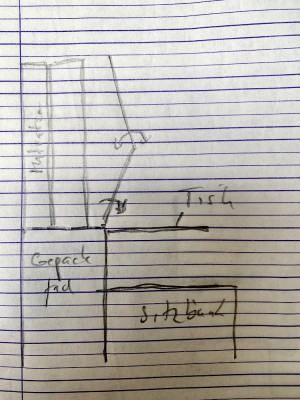 Tisch
Gepäck
fach
Sitzbank